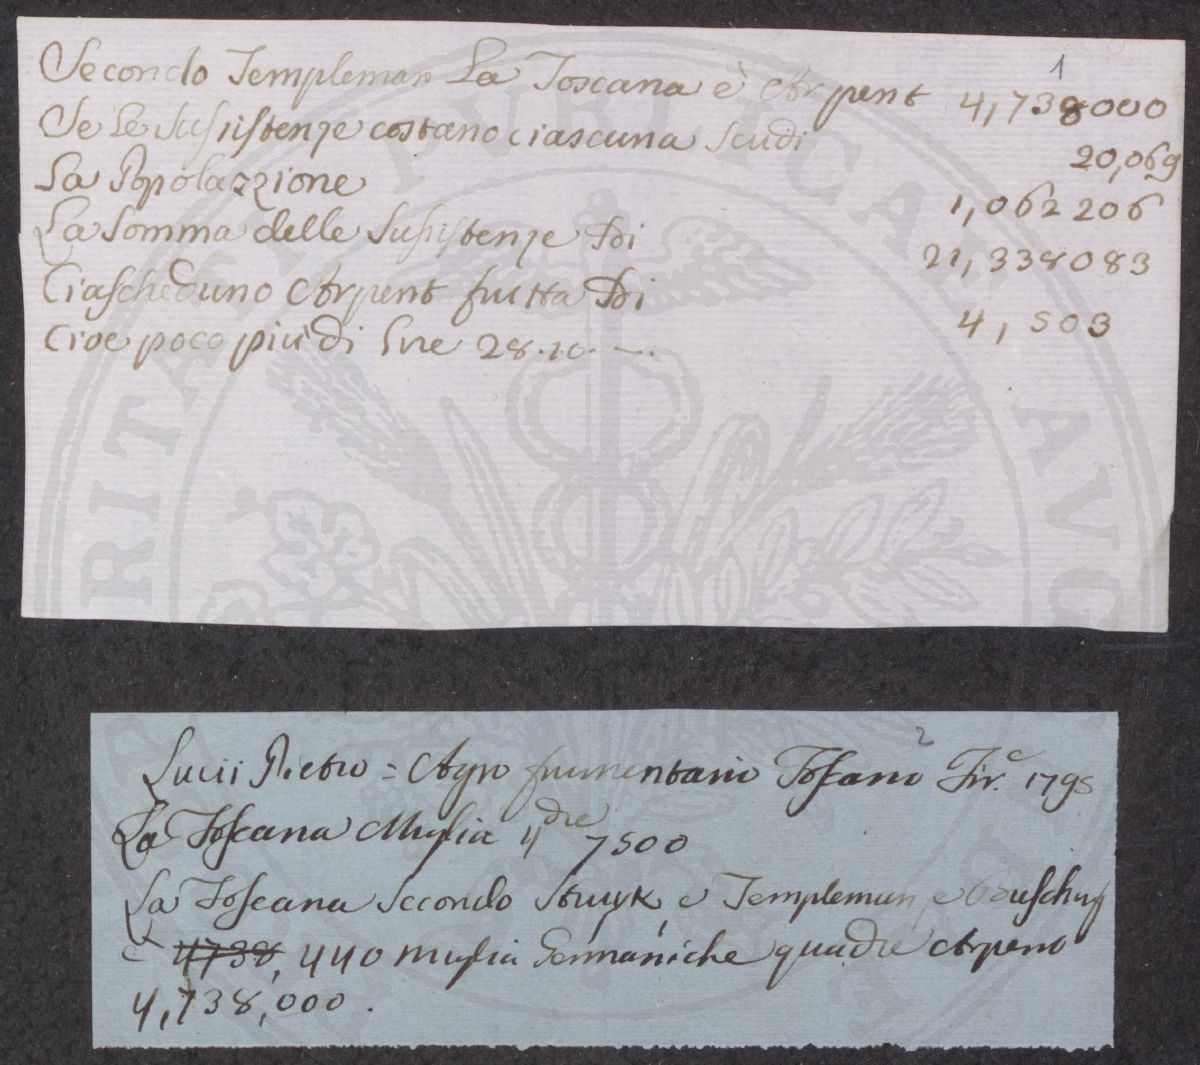 1
Secondo Templeman La Toscana è Arpent 4,738000
Se Le Susistenze costano ciascuna Scudi 20,069
La Popolazzione 1,062206
La Somma delle Susistenze Di 21,338083
Ciascheduno Arpent frutta Di 4,503
Cioe poco più di lire 28.10.—.
2
Lucii Pietro = Agro frumentario Toscano Fir.e 1795
La Toscana Miglia q.dre 7500
La Toscana Secondo Struyk, e Templeman, e Busching
è 4738, 440 miglia Germaniche quadre Arpent
4,738,000.